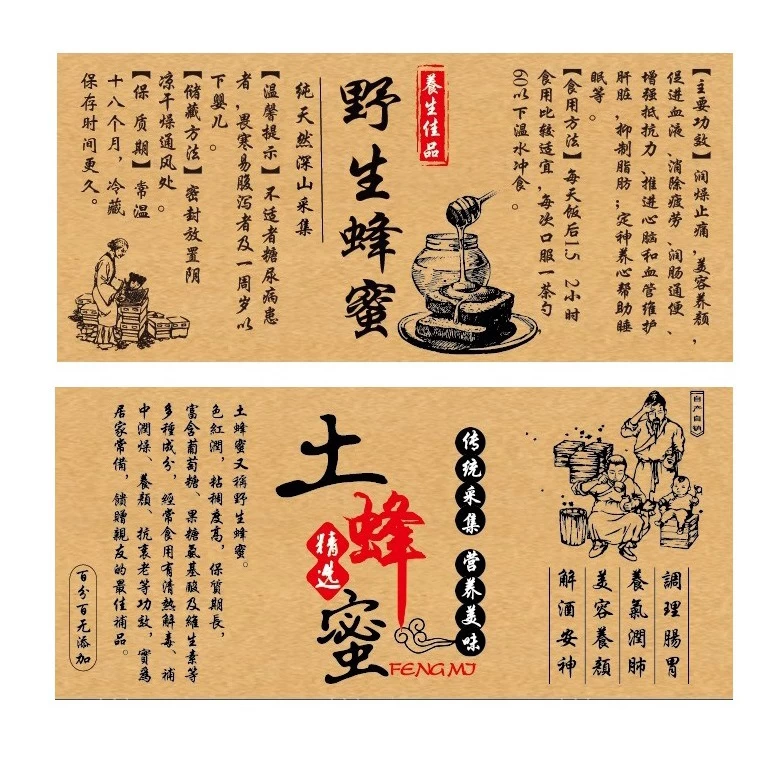 【主要功效】润燥止痛，美容养颜，
促进血液、消除疲劳、润肠通便、
增强抵抗力、推进心脑和血管维护
肝脏，抑制脂肪；定神养心帮助睡
眠等。
【食用方法】每天饭后1.5 2小时
食用比较适宜，每次口服一茶勺
60以下温水冲食。
養生佳品
野生蜂蜜
纯天然深山采集
【温馨提示】不适者糖尿病患
者，畏寒易腹泻者及一周岁以
下婴儿。
【储藏方法】密封放置阴
凉干燥通风处。
【保质期】常温
十八个月，冷藏
保存时间更久。
自产自销
調理腸胃
養氣潤肺
美容養顏
解酒安神
传统采集 营养美味
土蜂蜜
精选
FENG MI
土蜂蜜又稱野生蜂蜜。
色紅潤，粘稠度高，保質期長，
富含葡萄糖、果糖氨基酸及維生素等
多種成分，經常食用有清熱解毒、補
中潤燥、養顏、抗衰老等功效，實爲
居家常備，餽贈親友的最佳補品。
百分百无添加